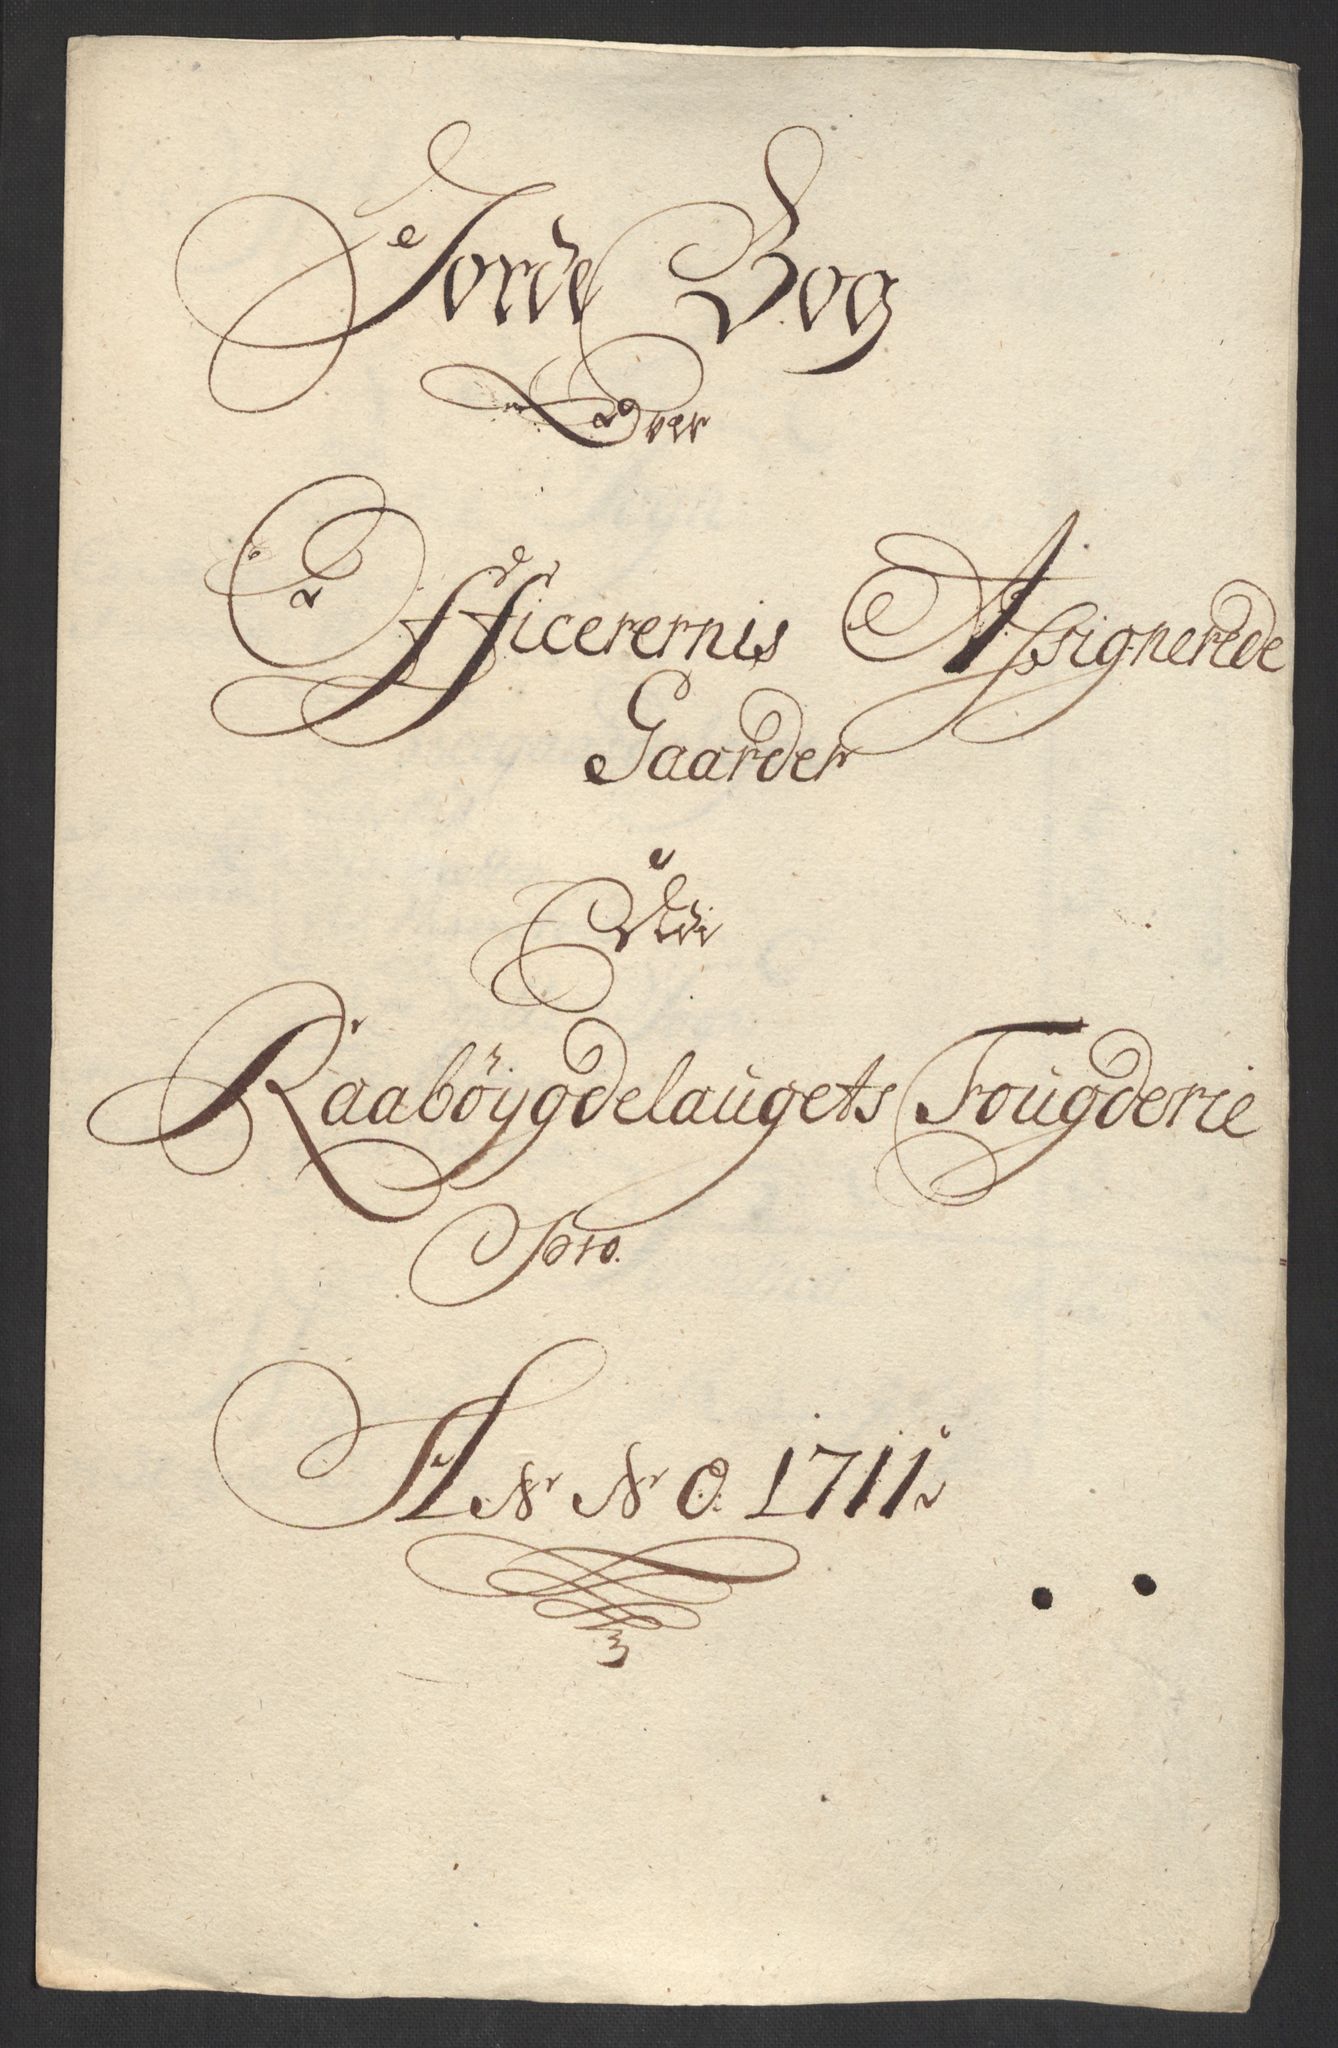 Jorde Bog
Over
Officerernis Assignerede
Gaarder
Udi
Raabøygdelaugets Fougderie
Pro
ANNO 1711